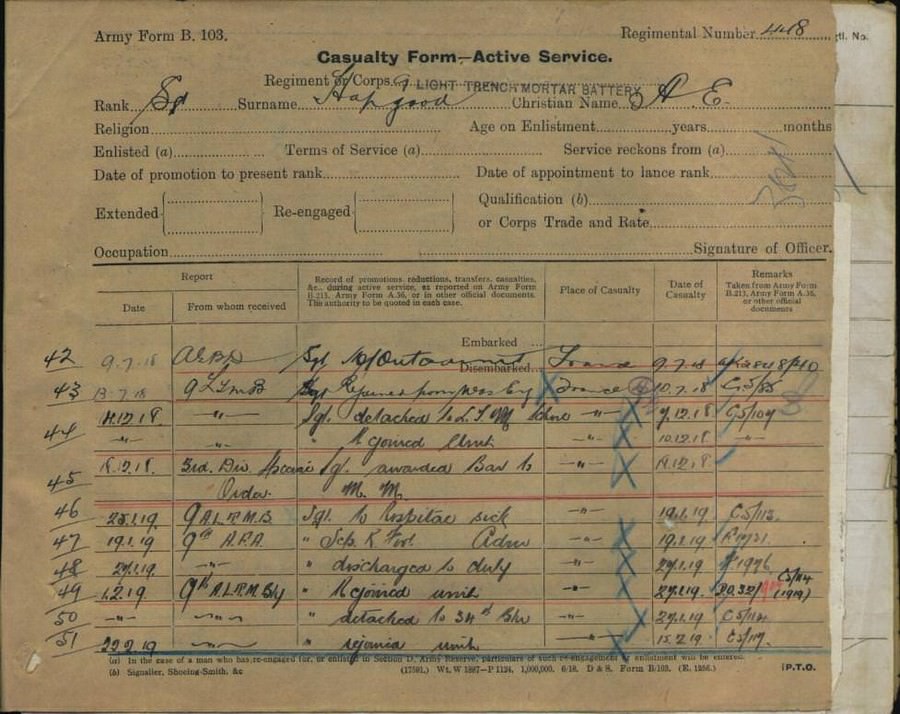 Army Form B. 103.
Regimental Number 448
Casualty Form—Active Service.
Regiment or Corps 9 LIGHT TRENCH MORTAR BATTERY
Rank Sgt Surname Hapgood Christian Name A E
Religion Age on Enlistment years months
Enlisted (a) Terms of Service (a) Service reckons from (a)
Date of promotion to present rank Date of appointment to lance rank
Extended Re-engaged Qualification (b)
or Corps Trade and Rate
Occupation Signature of Officer.
Report
Date From whom received
Record of promotions, reductions, transfers, casualties, &c., during active service, as reported on Army Form B.213, Army Form A.36, or in other official documents. The authority to be quoted in each case.
Place of Casualty
Date of Casualty
Remarks Taken from Army Form B.213, Army Form A.36, or other official documents
Embarked
Disembarked
42 9.7.18 Sgt France 9.7.18
43 13.7.18 9 LTMB Sgt Rejoined from France 10.7.18 C5/85
14.12.18 —"— Sgt. detached to L.T.M. —"— 7.12.18 C5/109
44 —"— —"— " Rejoined Unit —"— 10.12.18 —"—
45 18.12.18. 3rd. Div. Sgt. awarded Bar to —"—
Order M. M.
46 25.1.19 9 A.L.T.M.B. Sgt. to Hospital sick —"— 19.1.19 C5/113.
47 19.1.19 9th A.F.A. " Adm —"— 19.1.19
48 27.1.19. —"— " discharged to duty —"— 27.1.19.
49 1.2.19. 9th A.L.T.M.Bty " Rejoined unit —"— 27.1.19. C5/114 (1919)
50 —"— —"— " detached to 34th Bn —"—
51 22.2.19 —"— " rejoined unit —"— 15.2.19 C5/117.
(a) In the case of a man who has re-engaged for, or enlisted in Section D, Army Reserve, particulars of such re-engagement or enlistment will be entered.
(b) Signaller, Shoeing-Smith, &c (17591.) Wt. W 1887—P 1124. 1,000,000. 6/18. D & S. Form B/103. (E. 1256.) [P.T.O.